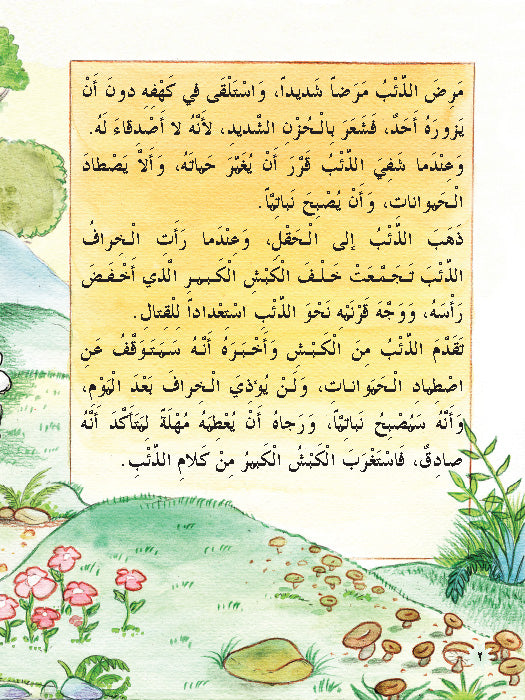 مَرِضَ الذِّئْبُ مَرَضاً شَديداً، وَاسْتَلْقَى في كَهْفِهِ دونَ أَنْ
يَزورَهُ أَحَدٌ، فَشَعَرَ بِالْحُزْنِ الشَّديدِ، لأَنَّهُ لا أَصْدِقاءَ لَهُ.
وَعِنْدَما شُفِيَ الذِّئْبُ قَرَّرَ أَنْ يُغَيِّرَ حَياتَهُ، وَأَلاَّ يَصْطادَ
الْحَيوانات، وَأَنْ يُصْبِحَ نَباتِيّاً.
ذَهَبَ الذِّئْبُ إلى الْحَقْلِ، وَعِنْدَما رَأَتِ الْخِرافُ
الذِّئْبَ تَجَمَّعَتْ خَلْفَ الْكَبْشِ الْكَبيرِ الَّذي أَخْفَضَ
رَأْسَهُ، وَوَجَّهَ قَرْنَيْهِ نَحْوَ الذِّئْبِ اسْتِعْداداً لِلْقِتالِ.
تَقَدَّمَ الذِّئْبُ مِنَ الْكَبْشِ وَأَخْبَرَهُ أَنَّهُ سَيَتَوَقَّفُ عَنِ
اصْطِيادِ الْحَيَوانـاتِ، وَلَـنْ يُؤذيَ الْخِرافَ بَعْدَ الْيَوْمِ،
وَأَنَّهُ سَيُصْبِحُ نَباتِيّاً، وَرَجاهُ أَنْ يُعْطِيَهُ مُهْلَةً لِيَتَأَكَّدَ أَنَّهُ
صادِقٌ، فَاسْتَغْرَبَ الْكَبْشُ الْكَبيرُ مِنْ كَلامِ الذِّئْبِ.
٢